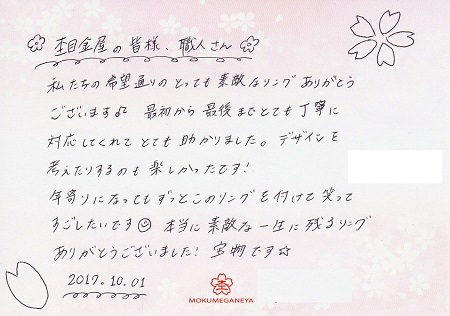 杢目金屋の皆様、職人さん
私たちの希望通りのとっても素敵なリングありがとう
ございます♪ 最初から最後までとても丁寧に
対応してくれてとても助かりました。デザインを
考えたりするのも楽しかったです!
年寄りになってもずっとこのリングを付けて笑って
すごしたいです☺ 本当に素敵な一生に残るリング
ありがとうございました! 宝物です☆
2017.10.01
MOKUMEGANEYA